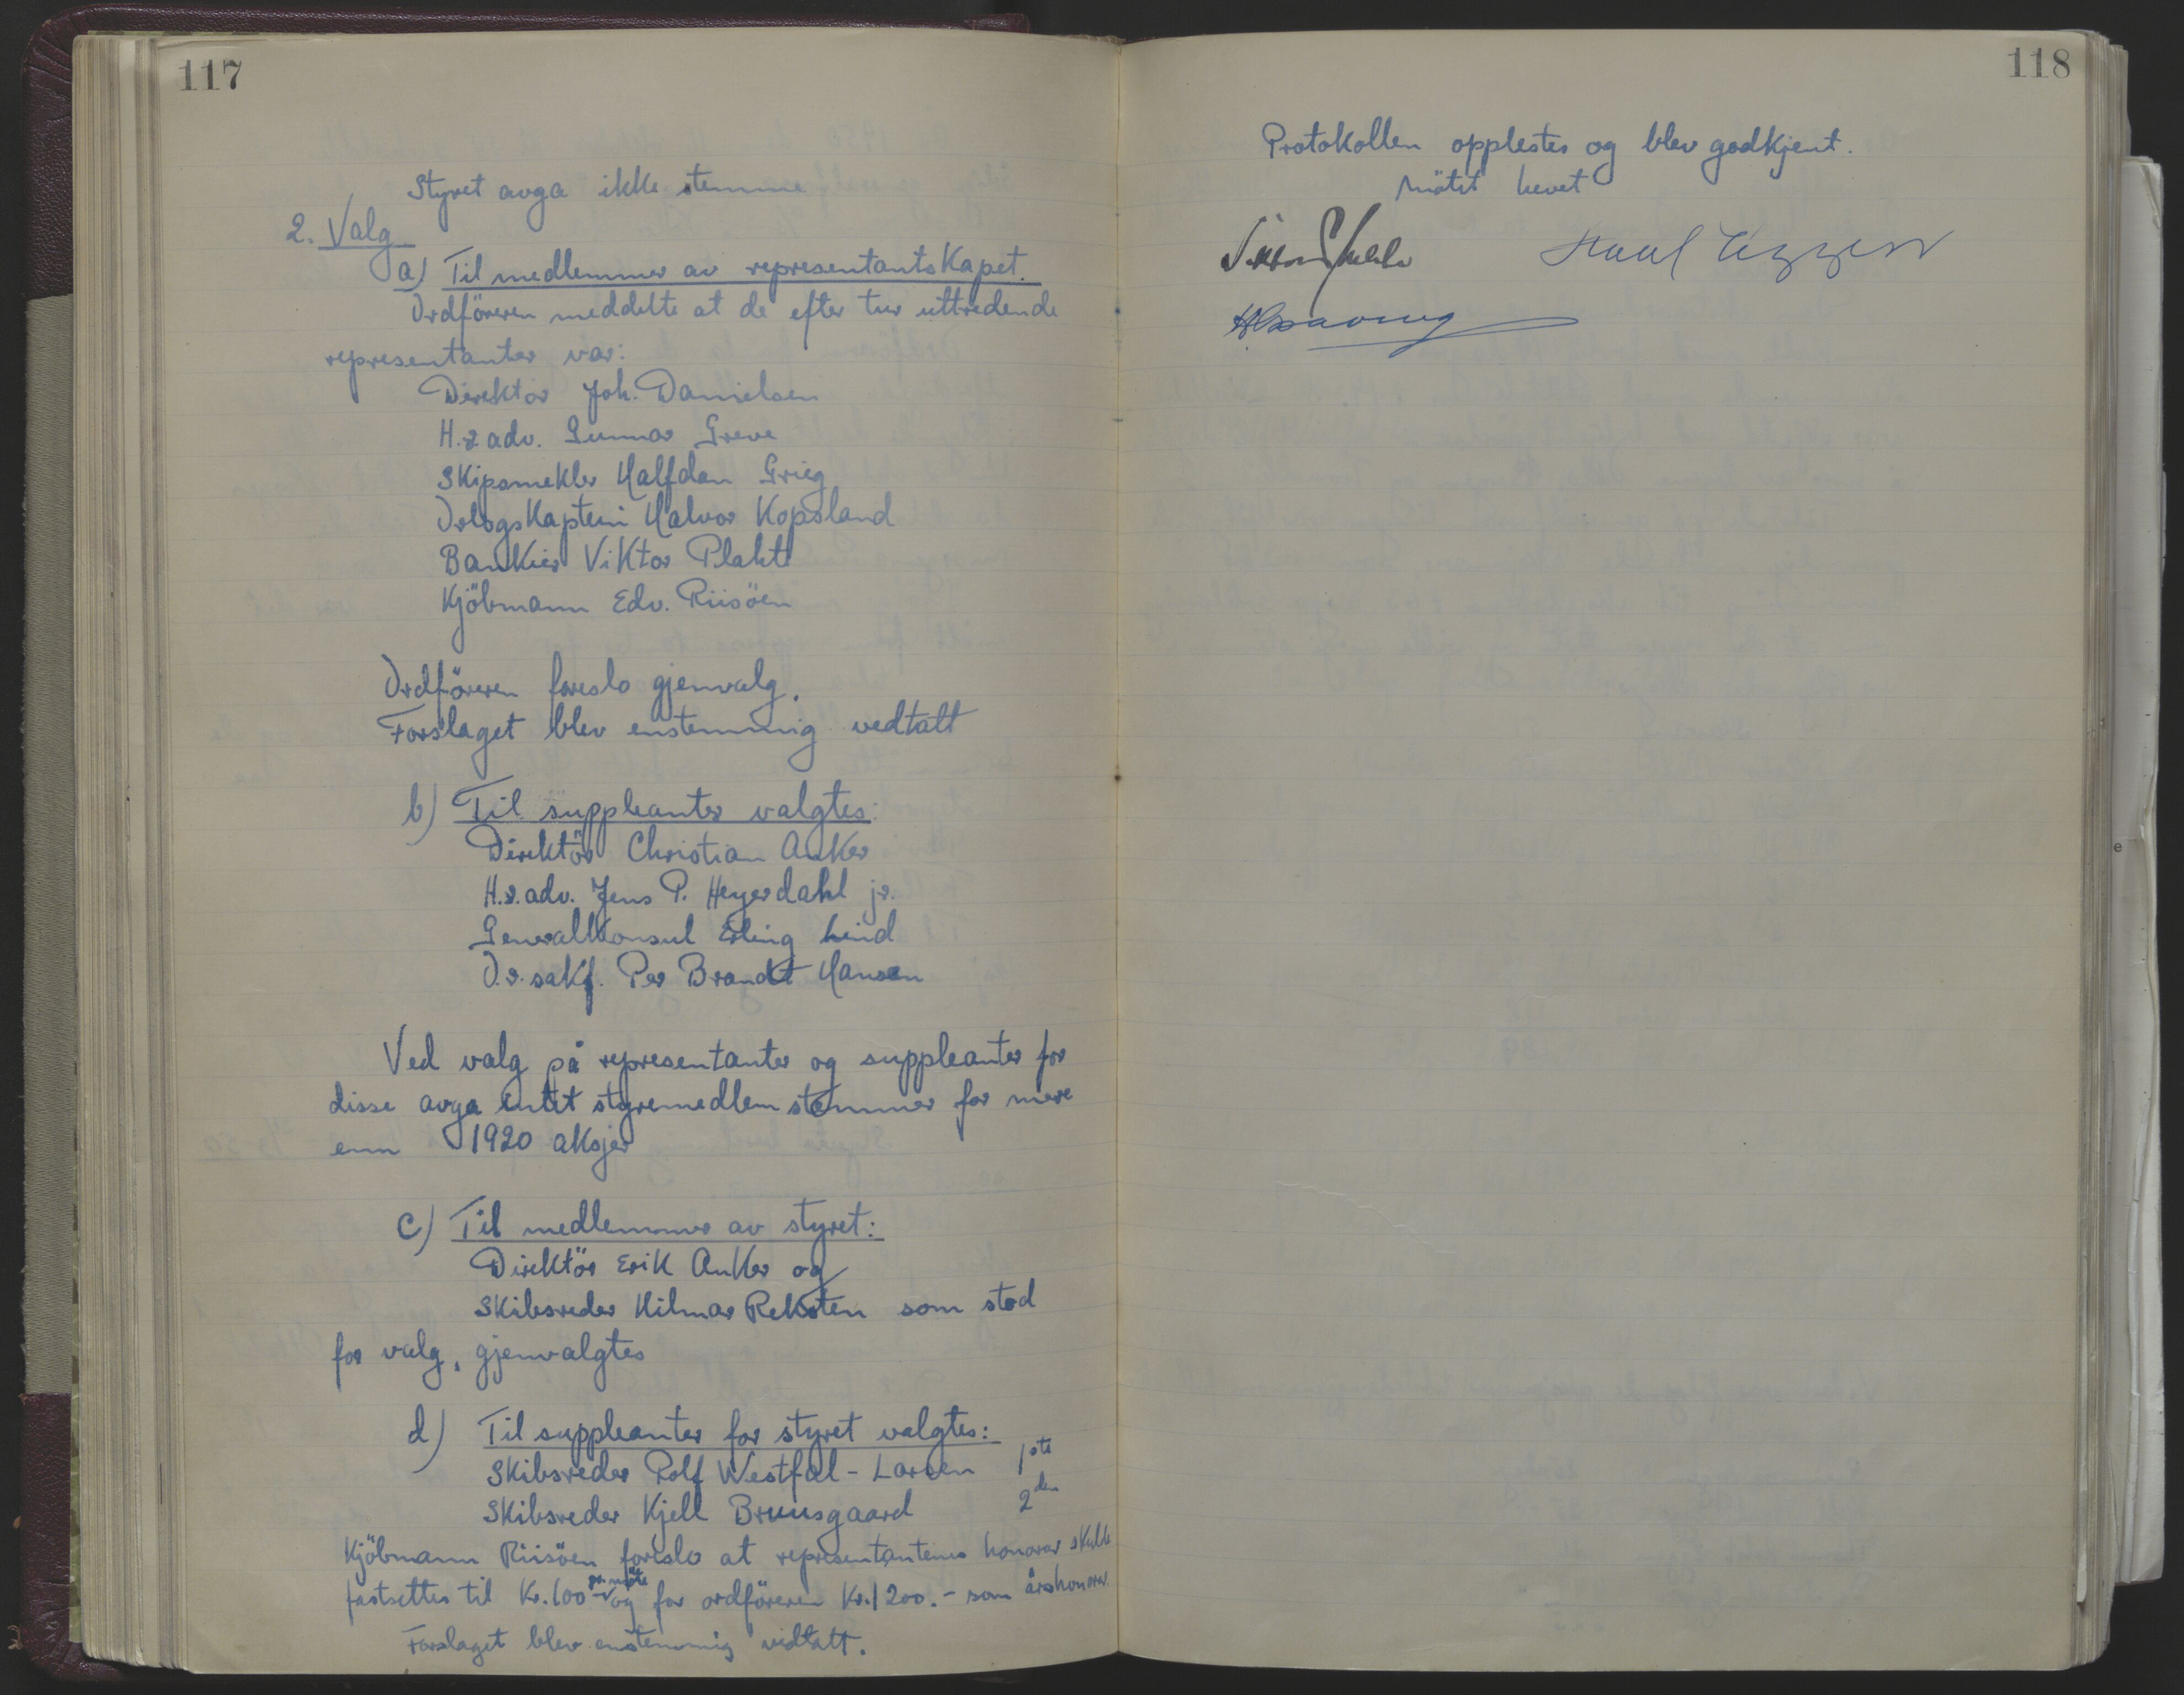 117
Styret avga ikke stemme
2. Valg
a) Til medlemmer av representantskapet.
Ordföreren meddelte at de efter tur uttredende
representanter var:
Direktör Joh. Danielsen
H.r.adv. Gunnar Greve
Skipsmekler Halfdan Grieg
Orlogskaptein Halvor Kopsland
Bankier Viktor Plahte
Kjöbmann Edv. Riisöen
Ordföreren foreslo gjenvalg.
Forslaget blev enstemmig vedtatt
b) Til suppleanter valgtes:
Direktör Christian Anker
H.r.adv. Jens P. Heyerdahl jr.
Generalkonsul Erling Lind
O.r.sakf. Per Brandt Hansen
Ved valg på representanter og suppleanter for
disse avga intet styremedlem stemmer for mere
enn 1920 aksjer
c) Til medlemmer av styret:
Direktör Erik Anker og
Skibsreder Hilmar Reksten som stod
for valg, gjenvalgtes
d) Til suppleanter for styret valgtes:
Skibsreder Rolf Westfal-Larsen 1ste
Skibsreder Kjell Bruusgaard 2den
Kjöbmann Riisöen foreslo at representantenes honorar skulde
fastsettes til Kr. 100 pr. möte og for ordföreren Kr. 1200.- som årshonorar.
Forslaget blev enstemmig vedtatt.
118
Protokollen opplestes og blev godkjent.
Mötet hevet